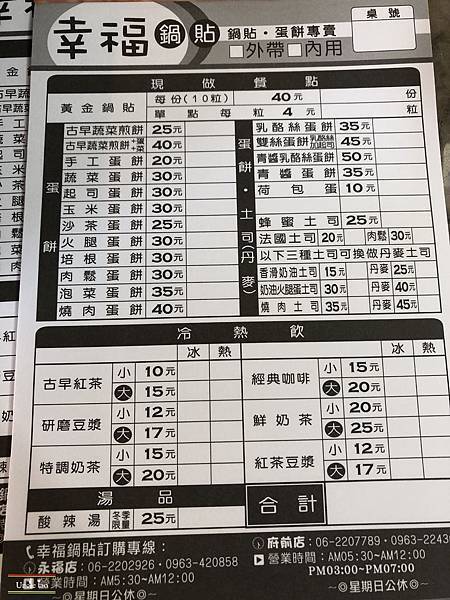 幸福鍋貼
鍋貼・蛋餅專賣
□外帶□內用
桌號
現做餐點
黃金鍋貼 每份(10粒) 40元 份
單點每粒4元 粒
蛋餅
古早蔬菜煎餅 25元
古早蔬菜煎餅 40元
手工蛋餅 20元
蔬菜蛋餅 30元
起司蛋餅 30元
玉米蛋餅 30元
沙茶蛋餅 25元
火腿蛋餅 30元
培根蛋餅 30元
肉鬆蛋餅 30元
泡菜蛋餅 35元
燒肉蛋餅 40元
蛋餅・土司(丹麥)
乳酪絲蛋餅 35元
雙絲蛋餅 乳酪絲加起司 45元
青醬乳酪絲蛋餅 50元
青醬蛋餅 35元
荷包蛋 10元
蜂蜜土司 25元
法國土司 20元 肉鬆 30元
以下三種土司可換做丹麥土司
香滑奶油土司 15元 丹麥 25元
奶油火腿蛋土司 30元 丹麥 40元
燒肉土司 35元 丹麥 45元
冷熱飲
冰 熱 冰 熱
古早紅茶 小 10元
大 15元
研磨豆漿 小 12元
大 17元
特調奶茶 小 15元
大 20元
經典咖啡 小 15元
大 20元
鮮奶茶 小 20元
大 25元
紅茶豆漿 小 12元
大 17元
湯品
酸辣湯 冬季限量 25元
合計
幸福鍋貼訂購專線：
永福店：06-2202926・0963-420858
營業時間：AM5:30~AM12:00
府前店：06-2207789・0963-2243
營業時間：AM05:30~AM12:00
PM03:00~PM07:00
~◎星期日公休◎~
~◎星期日公休◎~